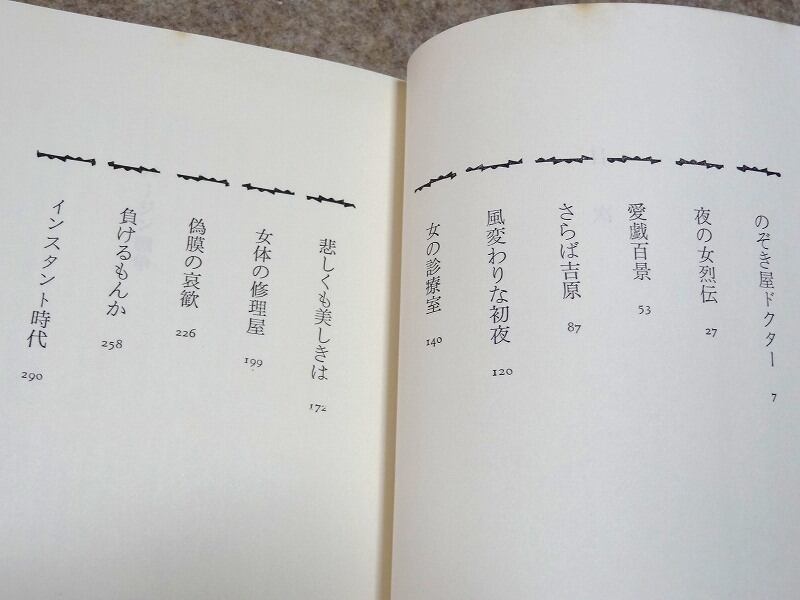 のぞき屋ドクター 7
夜の女烈伝 27
愛戯百景 53
さらば吉原 87
風変わりな初夜 120
女の診療室 140
悲しくも美しきは 172
女体の修理屋 199
偽膜の哀歓 226
負けるもんか 258
インスタント時代 290